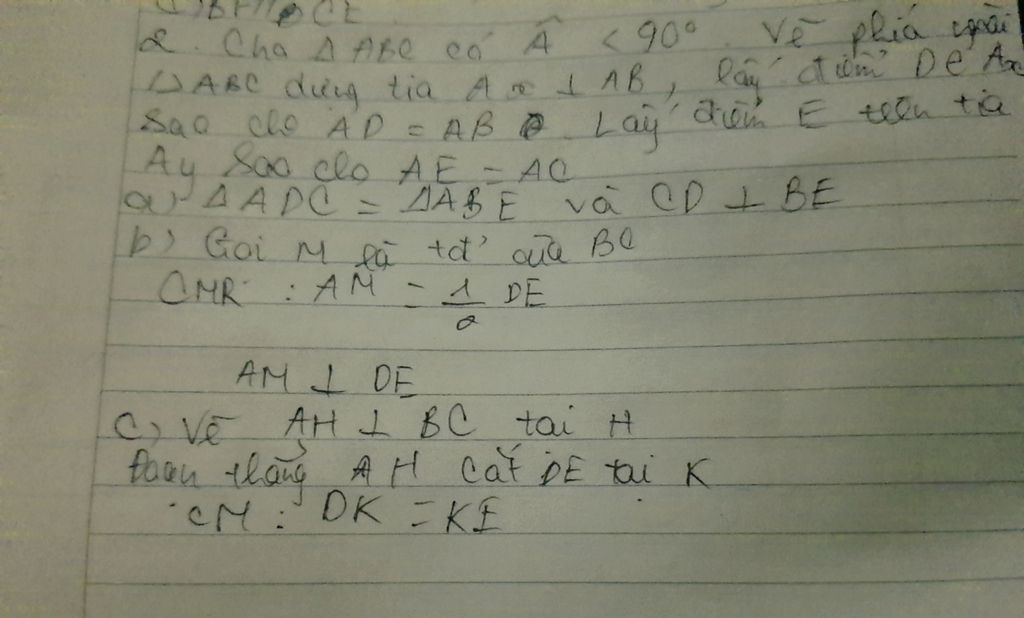 c) BF // DCE
2. Cho Δ ABC có Â < 90° Vẽ phía ngoài
Δ ABC dựng tia Ax ⊥ AB, lấy điểm D ∈ Ax
Sao cho AD = AB. Lấy điểm E trên tia
Ay Sao cho AE = AC
a) Δ ADC = Δ ABE và CD ⊥ BE
b) Gọi M là tđ' của BC
CMR : AM = 1/2 DE
AM ⊥ DE
C) Vẽ AH ⊥ BC tại H
Đoạn thẳng AH cắt DE tại K
CM : DK = KE